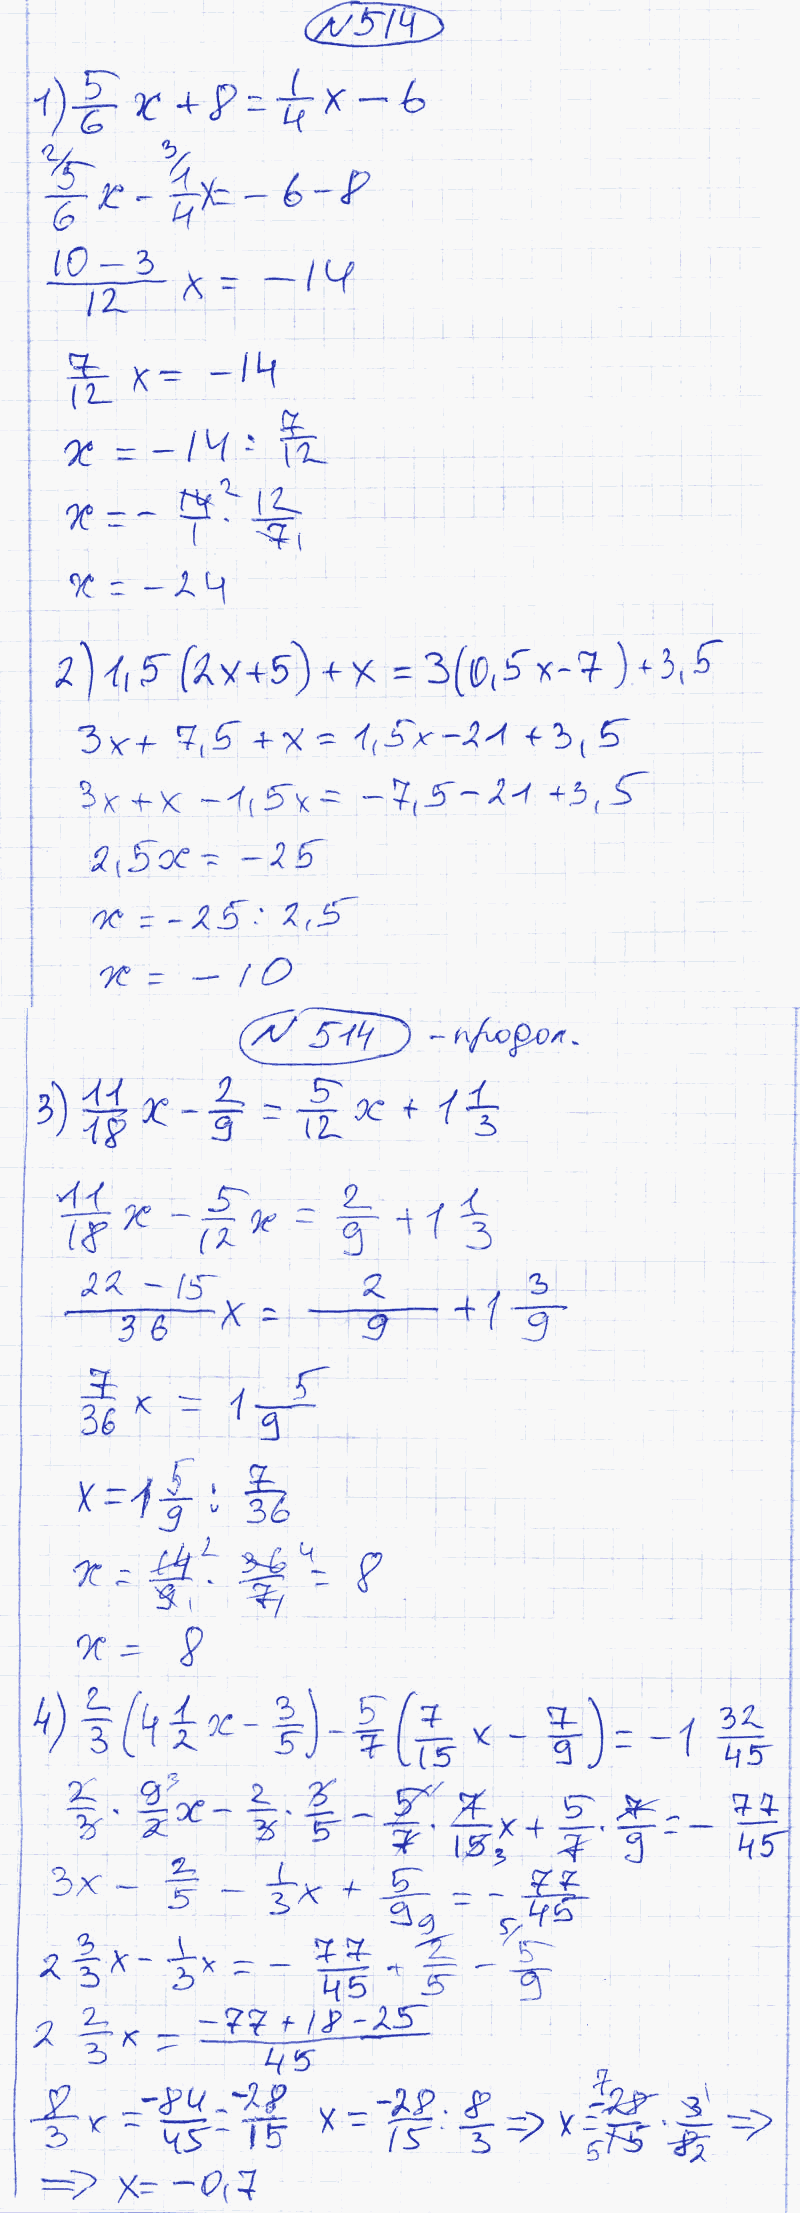 N 514
1) 5/6 x + 8 = 1/4 x - 6
2/ 5/6 x - 3/ 1/4 x = - 6 - 8
(10 - 3)/12 x = - 14
7/12 x = - 14
x = - 14 : 7/12
x = - 14²/1 · 12/7₁
x = - 24
2) 1,5 (2x+5) + x = 3(0,5x-7) + 3,5
3x + 7,5 + x = 1,5x - 21 + 3,5
3x + x - 1,5x = - 7,5 - 21 + 3,5
2,5x = - 25
x = - 25 : 2,5
x = - 10
N 514 - продол.
3) 11/18 x - 2/9 = 5/12 x + 1 1/3
11/18 x - 5/12 x = 2/9 + 1 1/3
(22 - 15)/36 x = 2/9 + 1 3/9
7/36 x = 1 5/9
x = 1 5/9 : 7/36
x = 14²/9₁ · 36⁴/7₁ = 8
x = 8
4) 2/3 (4 1/2 x - 3/5) - 5/7 (7/15 x - 7/9) = - 1 32/45
2/3 · 9³/2 x - 2/3 · 3/5 - 5¹/7 · 7/15₃ x + 5/7 · 7/9 = - 77/45
3x - 2/5 - 1/3 x + 5/9 = - 77/45
2 3/3 x - 1/3 x = - 77/45 + 9/ 2/5 - 5/ 5/9
2 2/3 x = (-77 + 18 - 25)/45
8/3 x = -84/45 = -28/15 x = -28/15 : 8/3 => x = -28⁷/15₅ · 3¹/8₂ =>
=> x = - 0,7